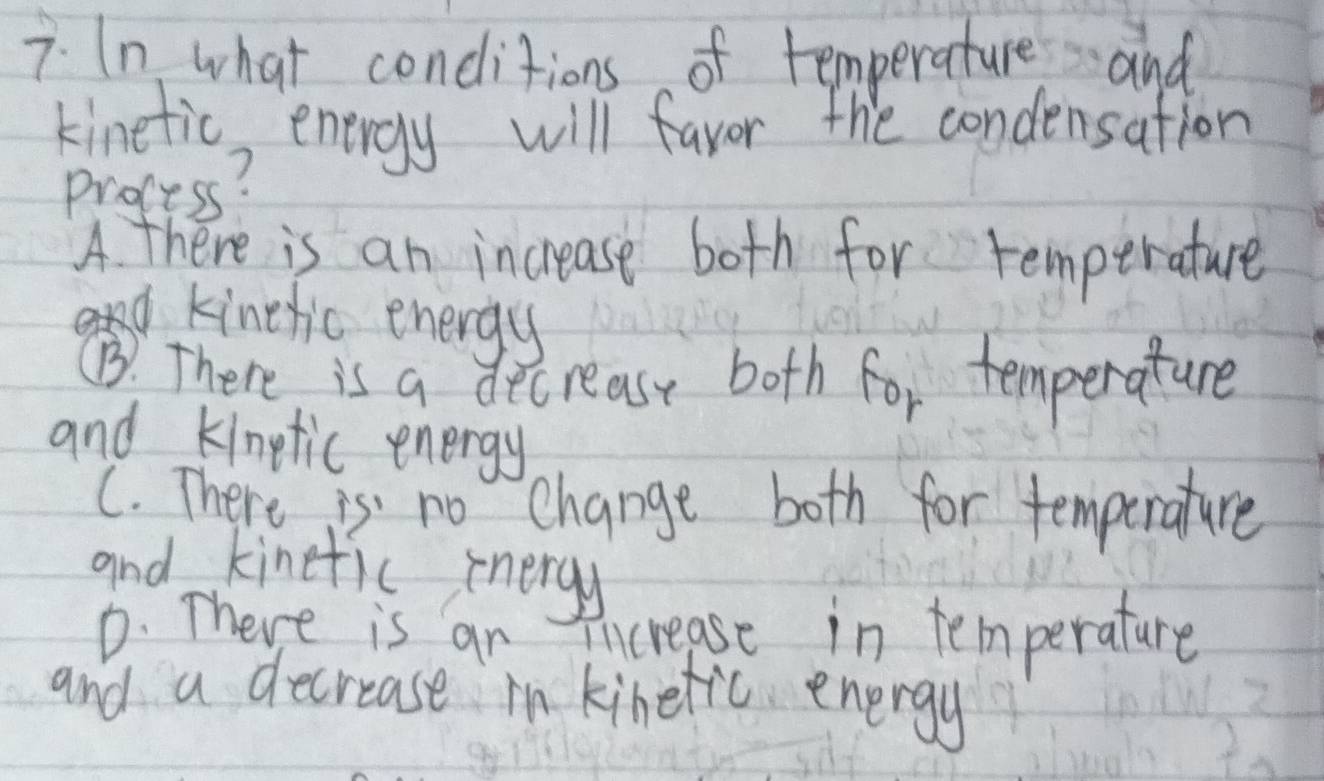 7. In what conditions of temperature and
kinetic energy will favor the condensation
process?
A. There is an increase both for temperature
and kinetic energy
B. There is a decrease both for temperature
and kinetic energy
C. There is no change both for temperature
and kinetic energy
D. There is an increase in temperature
and a decrease in kinetic energy